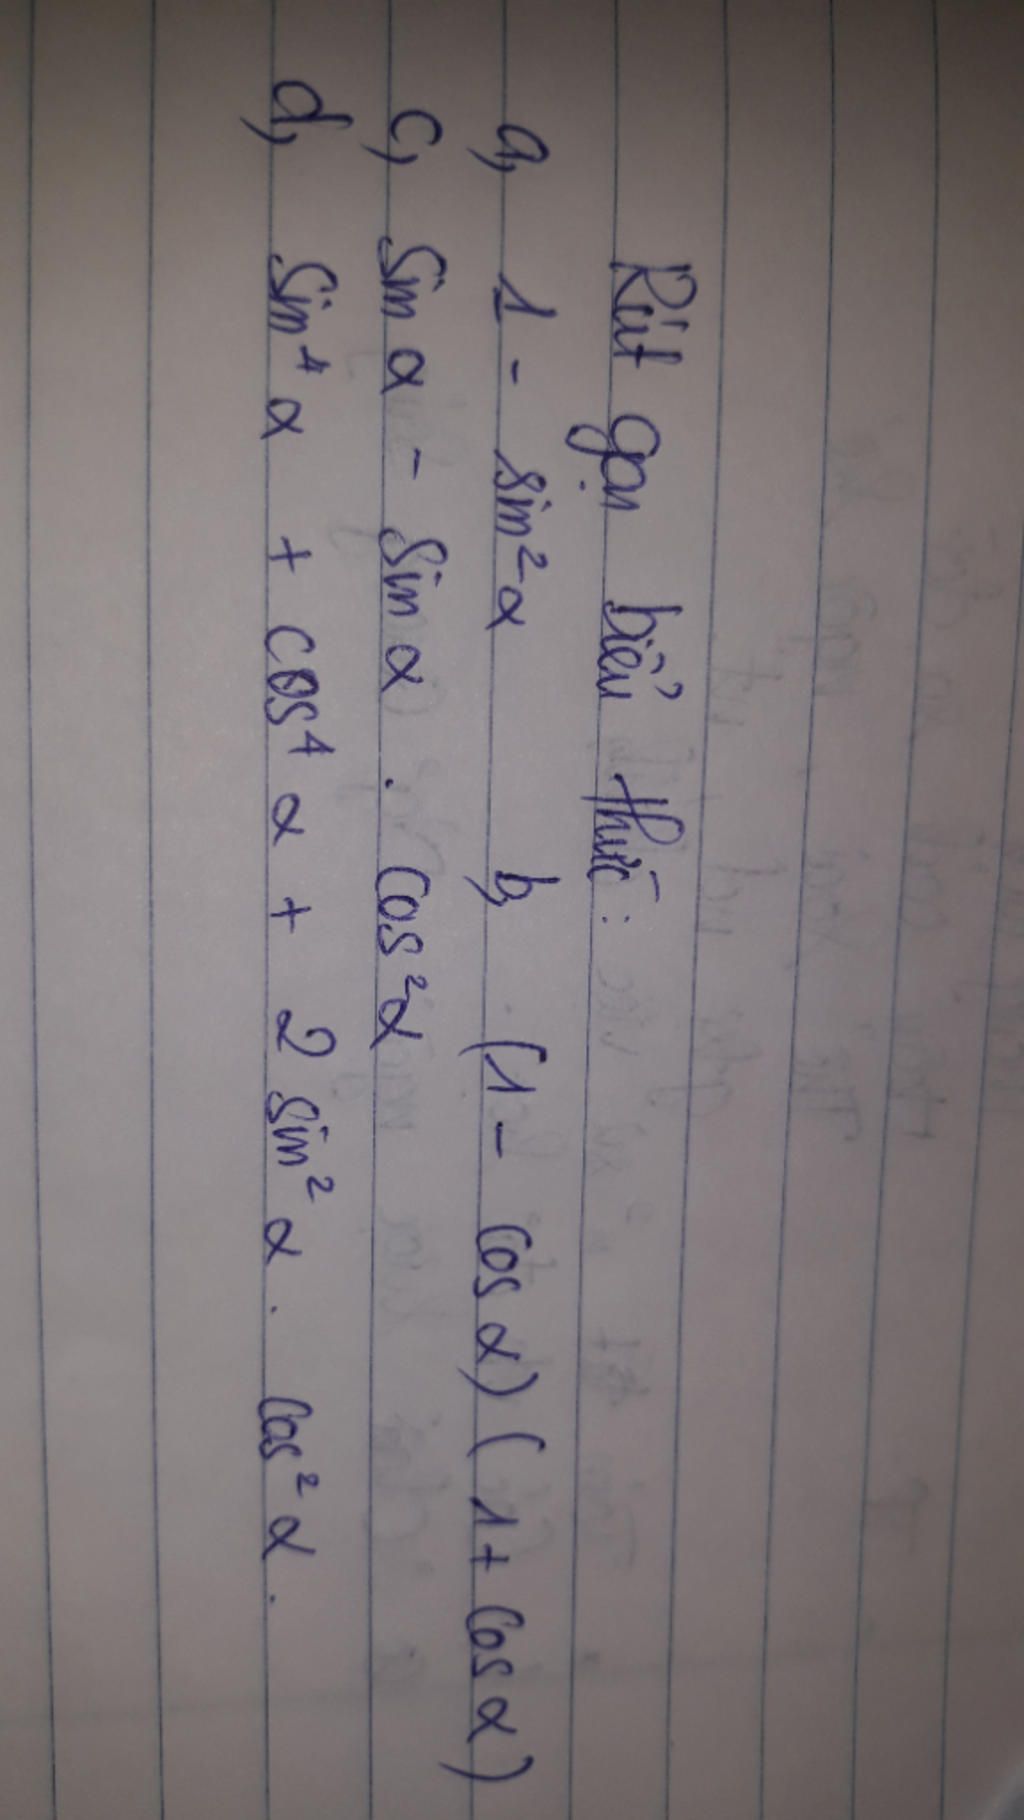 Rút gọn biểu thức:
a, 1 - sin²α b, (1 - cos α) (1 + cos α)
c, sin α - sin α . cos²α
d, sin⁴ α + cos⁴ α + 2 sin² α . cos² α .